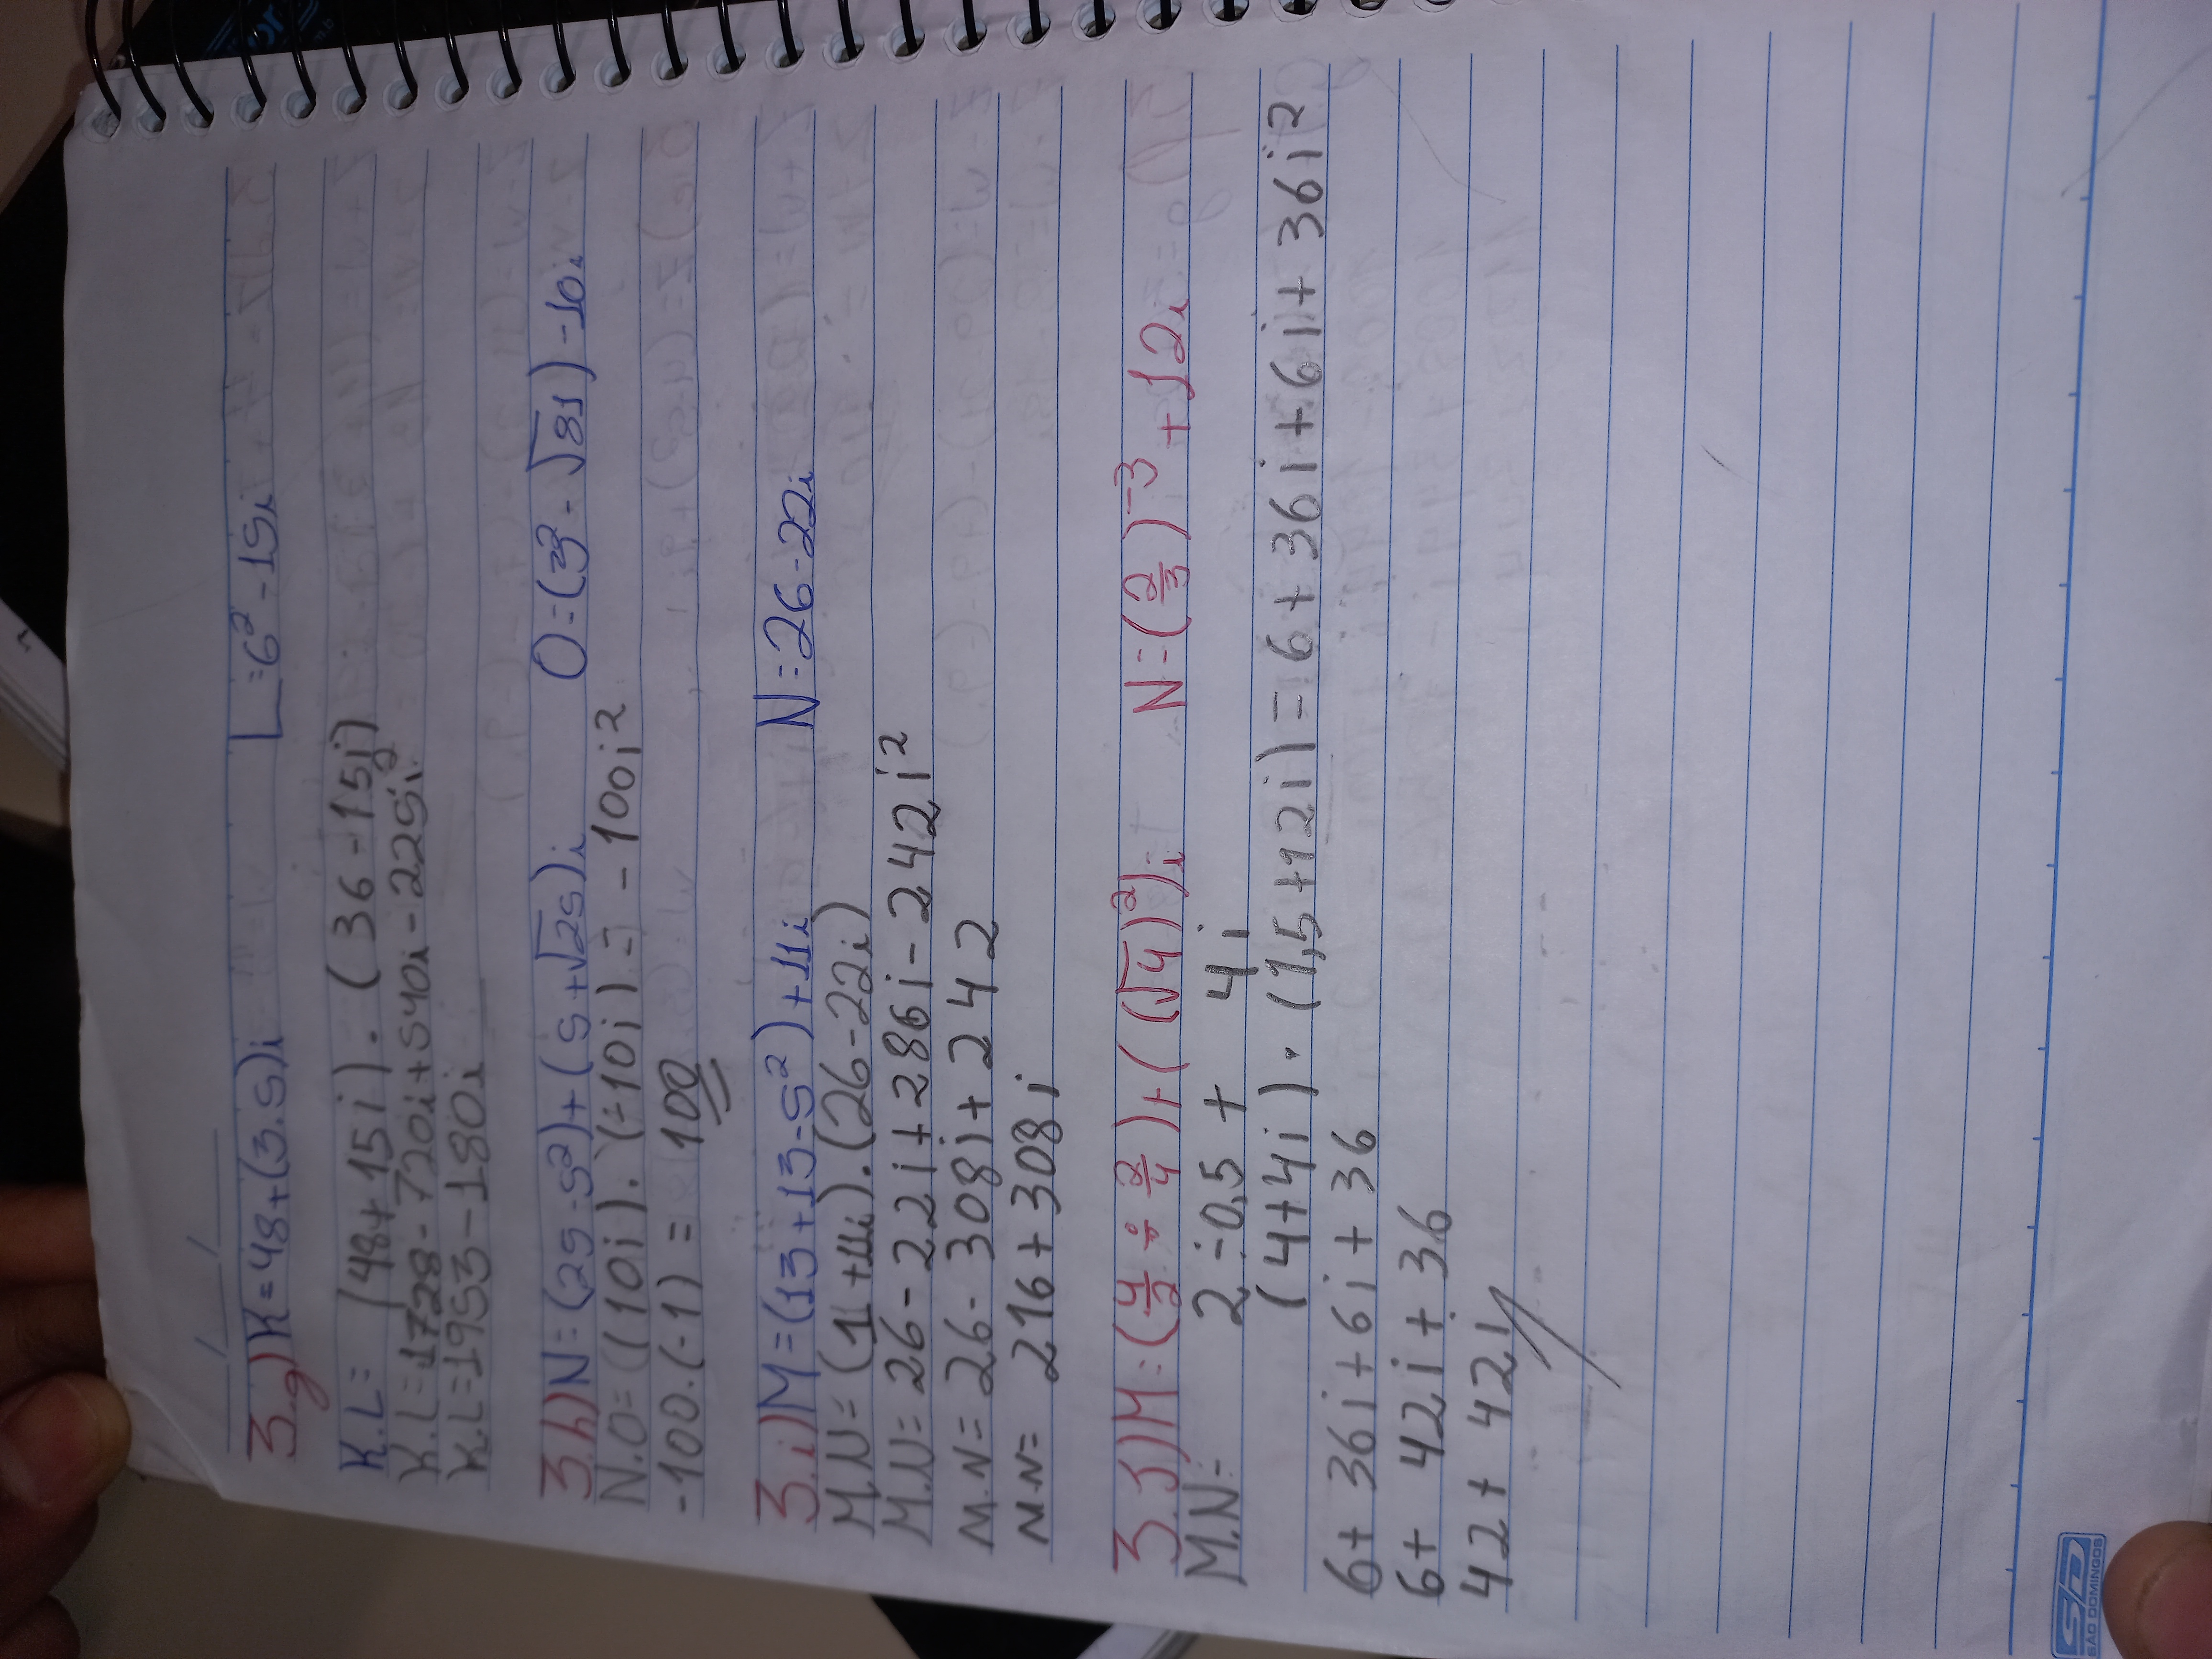 3.g) K=48+(3.5)i L=6²-15i
K.L= (48+15i).(36-15i)
K.L=1728-720i+540i-225i²
K.L=1953-180i
3.h) N=(25-5²)+(5+√25)i O=(3²-√81)-10i
N.O=(10i).(-10i)=-100i²
-100.(-1)= 100
3.i) M=(13+13-5²)+11i N=26-22i
M.N=(1+11i).(26-22i)
M.N=26-22i+286i-242i²
M.N=26-308i+242
M.N= 216+308i
3.J) M=(4/2÷2/4)+((√4)²)i N=(2/3)⁻³+12i
M.N= 2÷0,5+ 4i
(4+4i).(1,5+12i)=6+36i+6i+36i²
6+36i+6i+36
6+ 42i+36
42+ 42i
SD
SÃO DOMINGOS